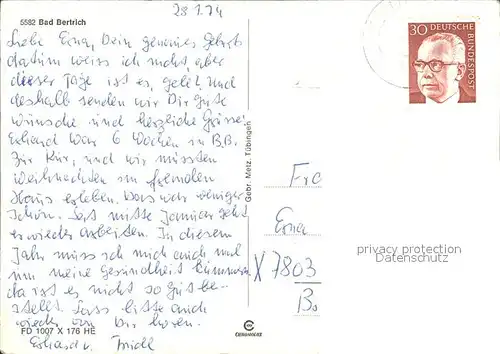 28.1.74
5582 Bad Bertrich
Liebe Erna, Dein genaues Geburts
datum weiss ich nicht, aber
dieser Tage ist es, gelt! Und
deshalb senden wir Dir gute
Wünsche und herzliche Grüsse.
Erhard war 6 Wochen in B.B.
zur Kur, und wir mussten
Weihnachten im fremden
Haus erleben. Das war weniger
schön. Seit mitte Januar geht
er wieder arbeiten. In diesem
Jahr muss ich mich auch mal
um meine Gesundheit kümmern
da ist es nicht so gut be-
stellt. Lass bitte auch
wieder von Dir hören.
FD 1007 X 176 HE
Erhard u. Friedl
Gebr. Metz, Tübingen
CEKADE
30 DEUTSCHE
BUNDESPOST
Fra
Erna
X 7803
privacy protection
Datenschutz